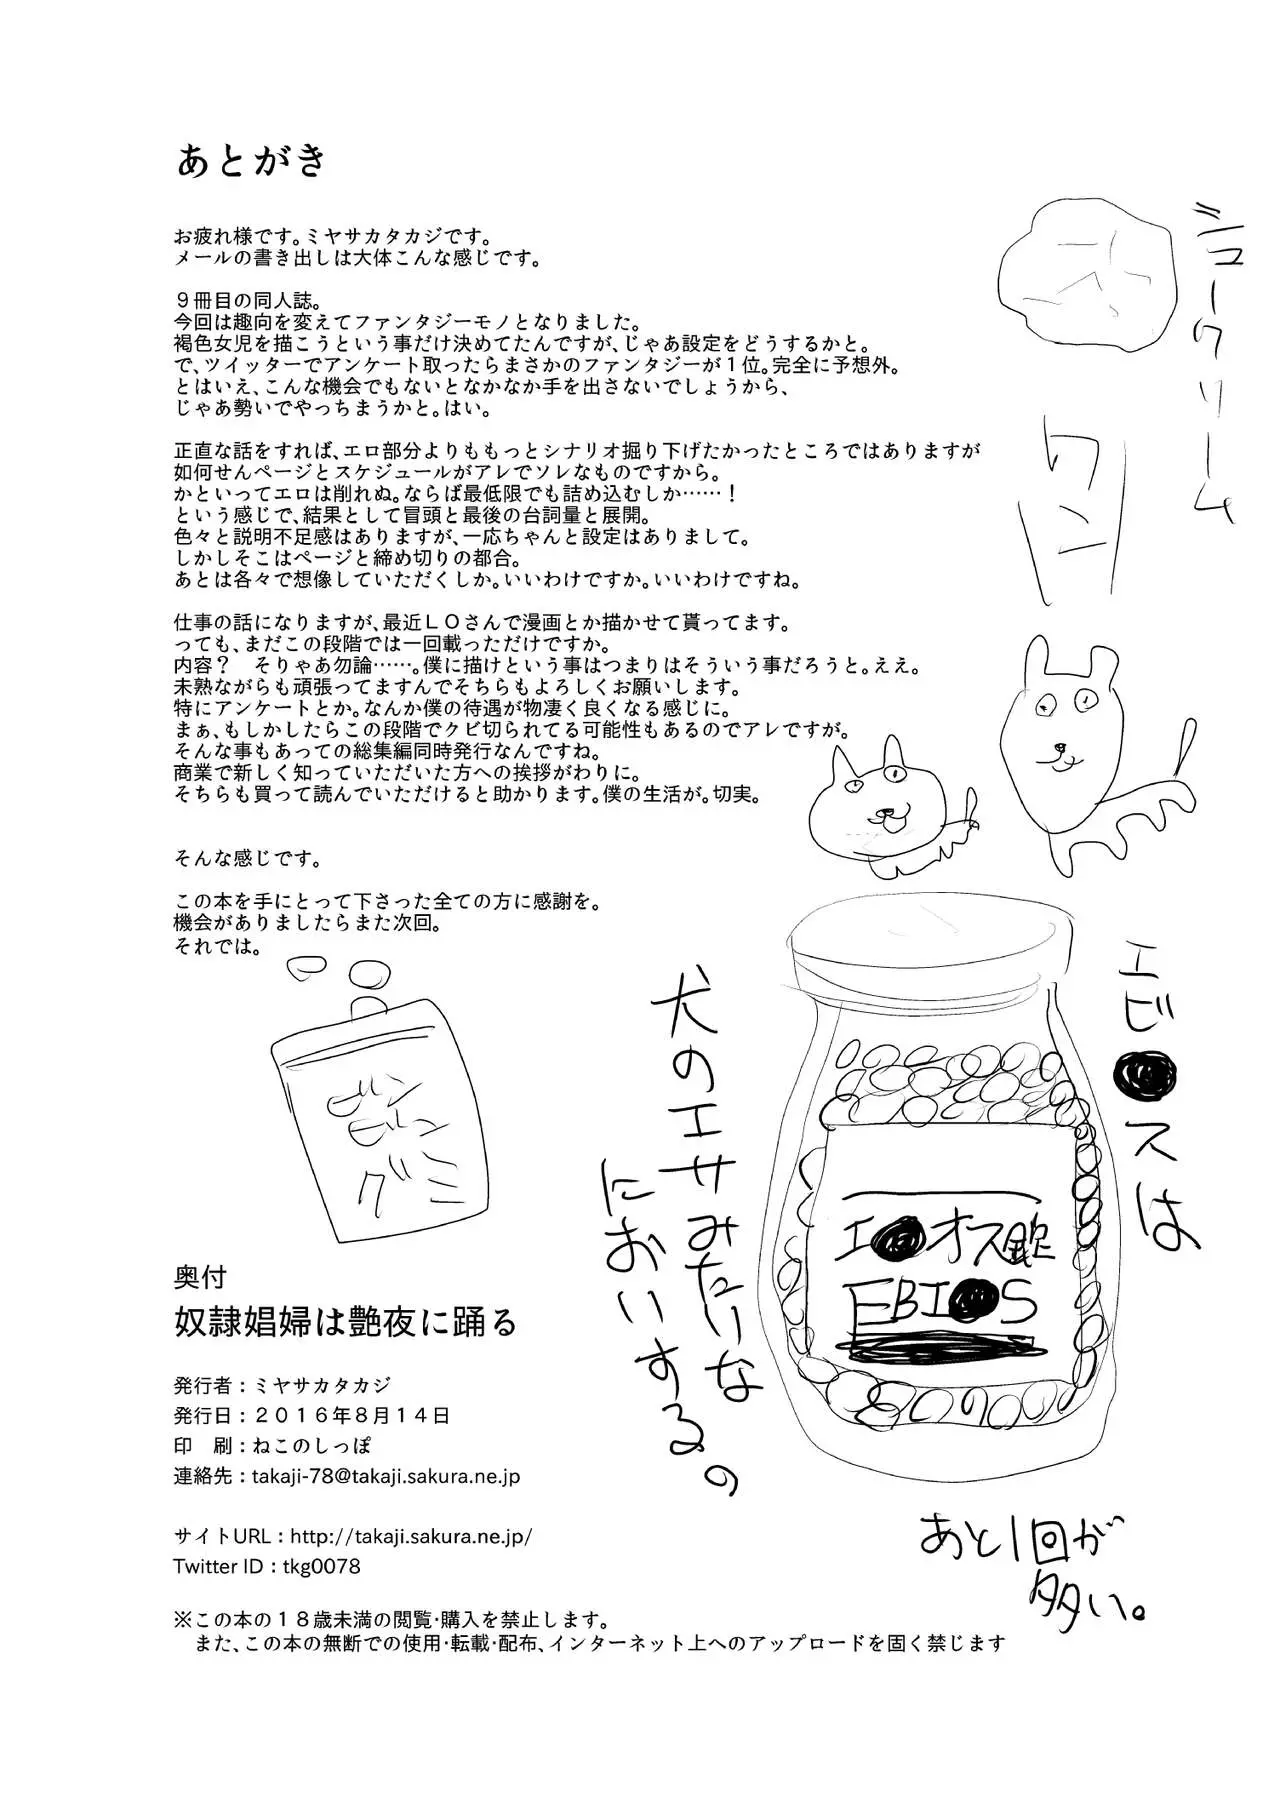 あとがき
お疲れ様です。ミヤサカタカジです。
メールの書き出しは大体こんな感じです。
９冊目の同人誌。
今回は趣向を変えてファンタジーモノとなりました。
褐色女児を描こうという事だけ決めてたんですが、じゃあ設定をどうするかと。
で、ツイッターでアンケート取ったらまさかのファンタジーが１位。完全に予想外。
とはいえ、こんな機会でもないとなかなか手を出さないでしょうから、
じゃあ勢いでやっちまうかと。はい。
正直な話をすれば、エロ部分よりももっとシナリオ掘り下げたかったところではありますが
如何せんページとスケジュールがアレでソレなものですから。
かといってエロは削れぬ。ならば最低限でも詰め込むしか……！
という感じで、結果として冒頭と最後の台詞量と展開。
色々と説明不足感はありますが、一応ちゃんと設定はありまして。
しかしそこはページと締め切りの都合。
あとは各々で想像していただくしか。いいわけですか。いいわけですね。
仕事の話になりますが、最近ＬＯさんで漫画とか描かせて貰ってます。
っても、まだこの段階では一回載っただけですか。
内容？　そりゃあ勿論……。僕に描けという事はつまりはそういう事だろうと。ええ。
未熟ながらも頑張ってますんでそちらもよろしくお願いします。
特にアンケートとか。なんか僕の待遇が物凄く良くなる感じに。
まぁ、もしかしたらこの段階でクビ切られてる可能性もあるのでアレですが。
そんな事もあっての総集編同時発行なんですね。
商業で新しく知っていただいた方への挨拶がわりに。
そちらも買って読んでいただけると助かります。僕の生活が。切実。
そんな感じです。
この本を手にとって下さった全ての方に感謝を。
機会がありましたらまた次回。
それでは。
シュークリーム
ワン
エビ●スは
犬のエサみたいな
においするの。
エ●オス錠
EBI●S
あと1回が
多い。
グミ
奥付
奴隷娼婦は艶夜に踊る
発行者：ミヤサカタカジ
発行日：２０１６年８月１４日
印　刷：ねこのしっぽ
連絡先：takaji-78@takaji.sakura.ne.jp
サイトURL：http://takaji.sakura.ne.jp/
Twitter ID：tkg0078
※この本の１８歳未満の閲覧・購入を禁止します。
また、この本の無断での使用・転載・配布、インターネット上へのアップロードを固く禁じます